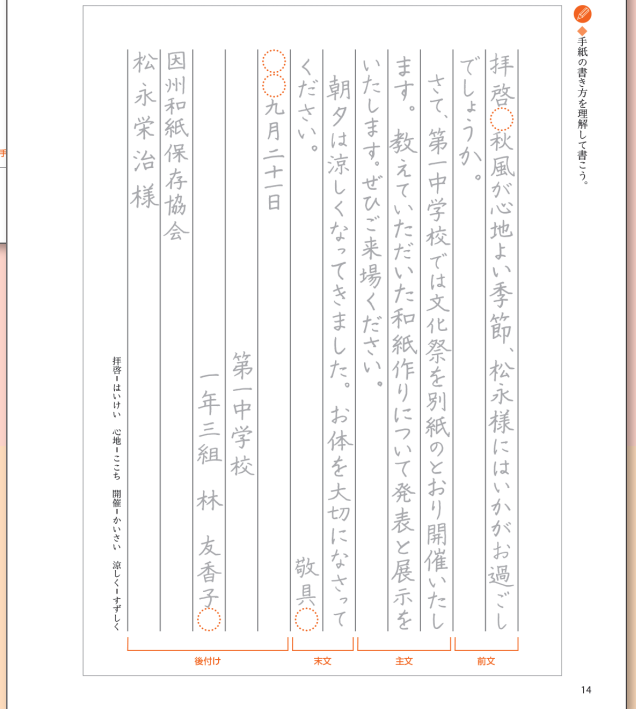 ◆手紙の書き方を理解して書こう。
拝啓 秋風が心地よい季節、松永様にはいかがお過ごし
でしょうか。
さて、第一中学校では文化祭を別紙のとおり開催いたし
ます。教えていただいた和紙作りについて発表と展示を
いたします。ぜひご来場ください。
朝夕は涼しくなってきました。お体を大切になさって
ください。 敬具
九月二十一日
第一中学校
一年三組 林 友香子
因州和紙保存協会
松永栄治様
拝啓＝はいけい 心地＝ここち 開催＝かいさい 涼しく＝すずしく
前文
主文
末文
後付け
14
手